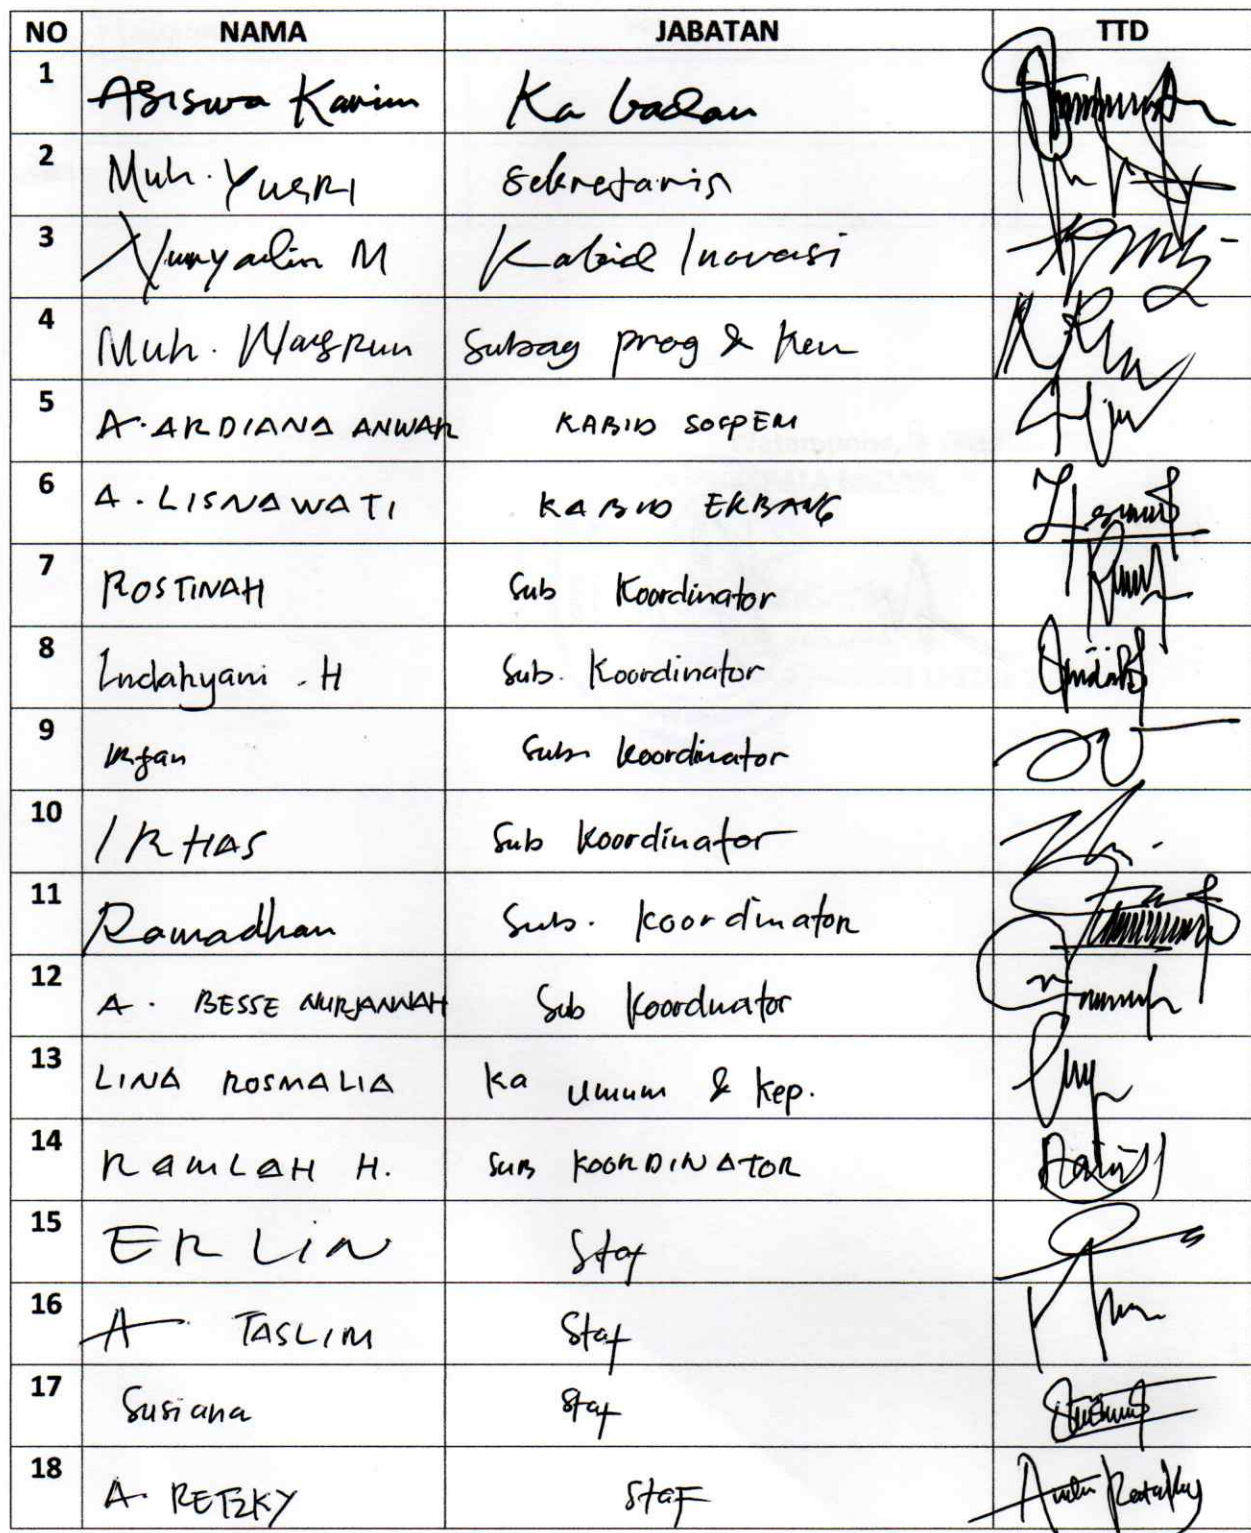 NO NAMA JABATAN TTD
1 Asiswa Karim Ka badan
2 Muh. YUSRI Sekretaris
3 M Kabid Inovasi
4 Muh. Subag prog & Keu
5 A. ARDIANA ANWAR KABID SOSPEM
6 A. LISNAWATI KABID EKBANG
7 ROSTINAH Sub Koordinator
8 Indahyani . H Sub. Koordinator
9 Irfan Sub Koordinator
10 IRHAS Sub Koordinator
11 Ramadhan Sub. Koordinator
12 A. BESSE NURJANNAH Sub Koordinator
13 LINA ROSMALIA Ka Umum & Kep.
14 RAMLAH H. SUB KOORDINATOR
15 ERLIN Staf
16 A TASLIM Staf
17 Susiana Staf
18 A. RETZKY Staf